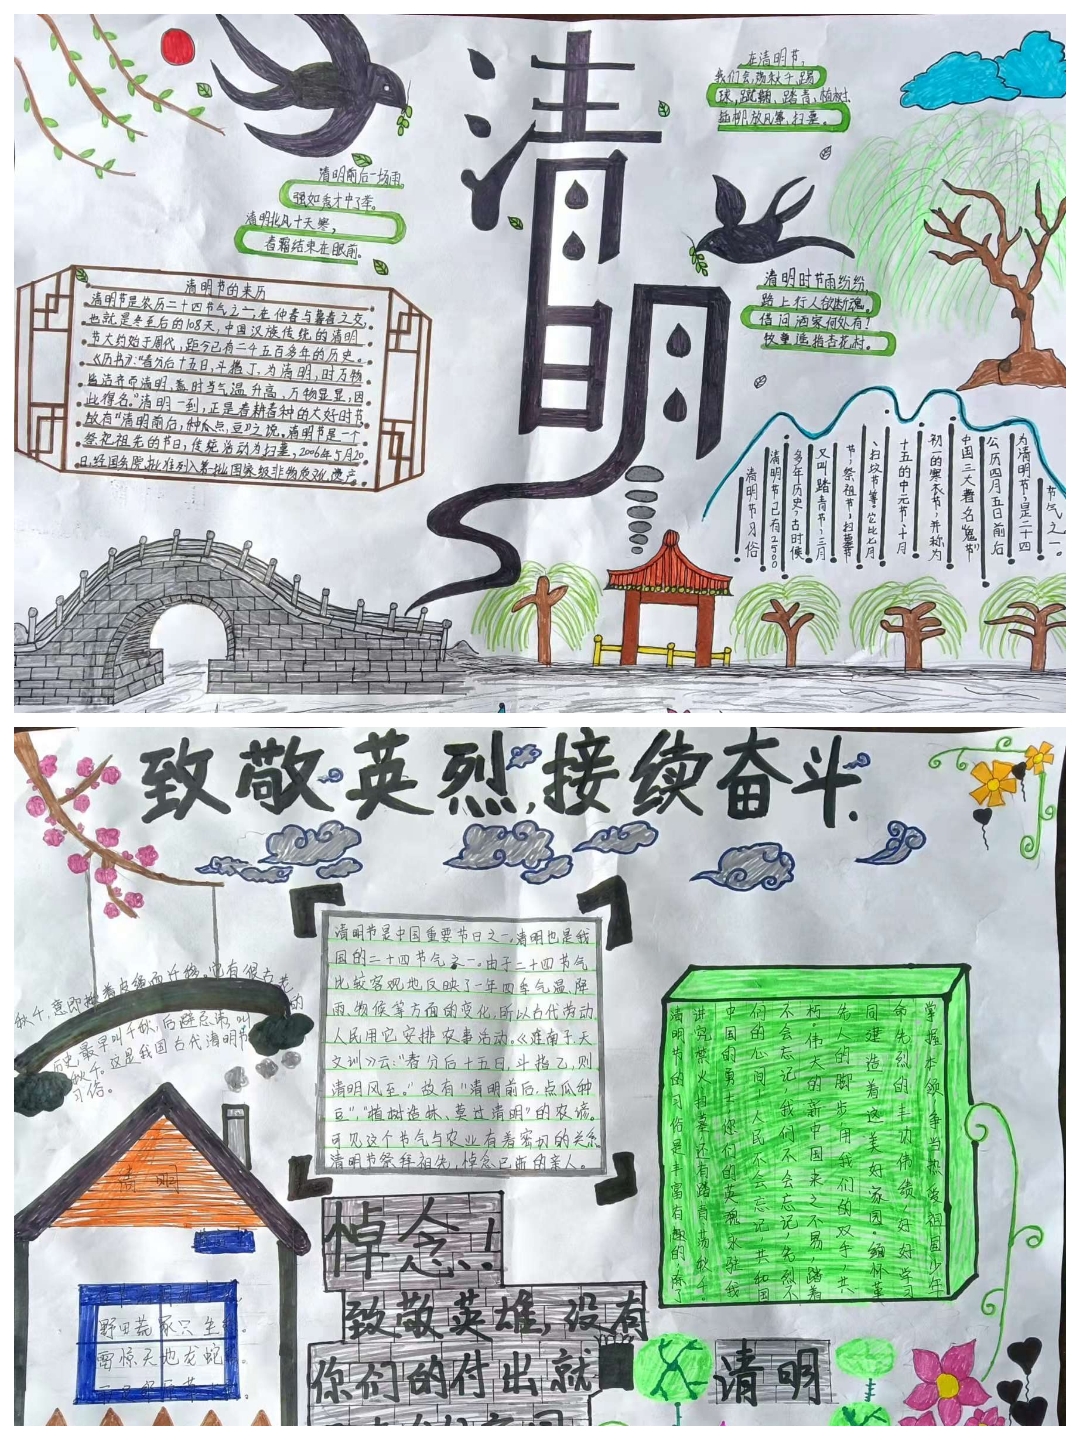 清明
在清明节,
我们会荡秋千,踢
球,蹴鞠、踏青、植树
插柳、放风筝、扫墓。
清明前后一场雨。
强如秀才中了举。
清明北风十天寒,
春霜结束在眼前。
清明时节雨纷纷,
路上行人欲断魂。
借问酒家何处有!
牧童遥指杏花村。
清明节的来历
清明节是农历二十四节气之一,在仲春与暮春之交,
也就是冬至后的108天,中国汉族传统的清明
节大约始于周代,距今已有二千五百多年的历史。
《历书》:"春分后十五日,斗指丁,为清明,时万物
皆洁齐而清明,盖时当气温升高,万物显显,因
此得名。"清明一到,正是春耕春种的大好时节
故有"清明前后,种瓜点,豆"之说,清明节是一个
祭祀祖先的节日,传统活动为扫墓,2006年5月20
日,经国务院批准列入第一批国家级非物质文化遗产。
节气之一。
为清明节,是二十四
公历四月五日前后
中国三大著名"鬼节"
初一的寒衣节,并称为
十五的中元节,十月
、扫坟节等。它比七月
节,祭祖节,扫墓节
又叫踏青节,三月
多年历史,古时候
清明节已有2500
清明节习俗
致敬英烈,接续奋斗.
清明节是中国重要节日之一,清明也是我
国的二十四节气之一。由于二十四节气
比较客观地反映了一年四季气温、降
雨、物候等方面的变化,所以古代劳动
人民用它安排农事活动。《淮南子·天
文训》云:"春分后十五日,斗指乙,则
清明风至。"故有"清明前后,点瓜种
豆""植树造林、莫过清明"的农谚。
可见这个节气与农业有着密切的关系
清明节祭拜祖先,悼念已逝的亲人。
秋千,意即揪着皮绳而迁移。它有很古老的
历史,最早叫千秋,后避忌讳,叫
秋千。这是我国古代清明节
习俗。
掌握本领,争当热爱祖国少年
命先烈的丰功伟绩,好好学习
同建造着这美好家园。缅怀革
先人的脚步用我们的双手,共
朽。伟大的新中国来之不易,踏着
不会忘记,我们不会忘记,先烈不
们的心间,人民不会忘记,共和国
中国的勇士你们的英魂永驻我
讲究禁火扫墓还有踏青荡秋千
清明节的习俗是丰富有趣的,除了
清明
野田荒冢只生
雷惊天地龙蛇
悼念!
致敬英雄,没有
你们的付出就
清明